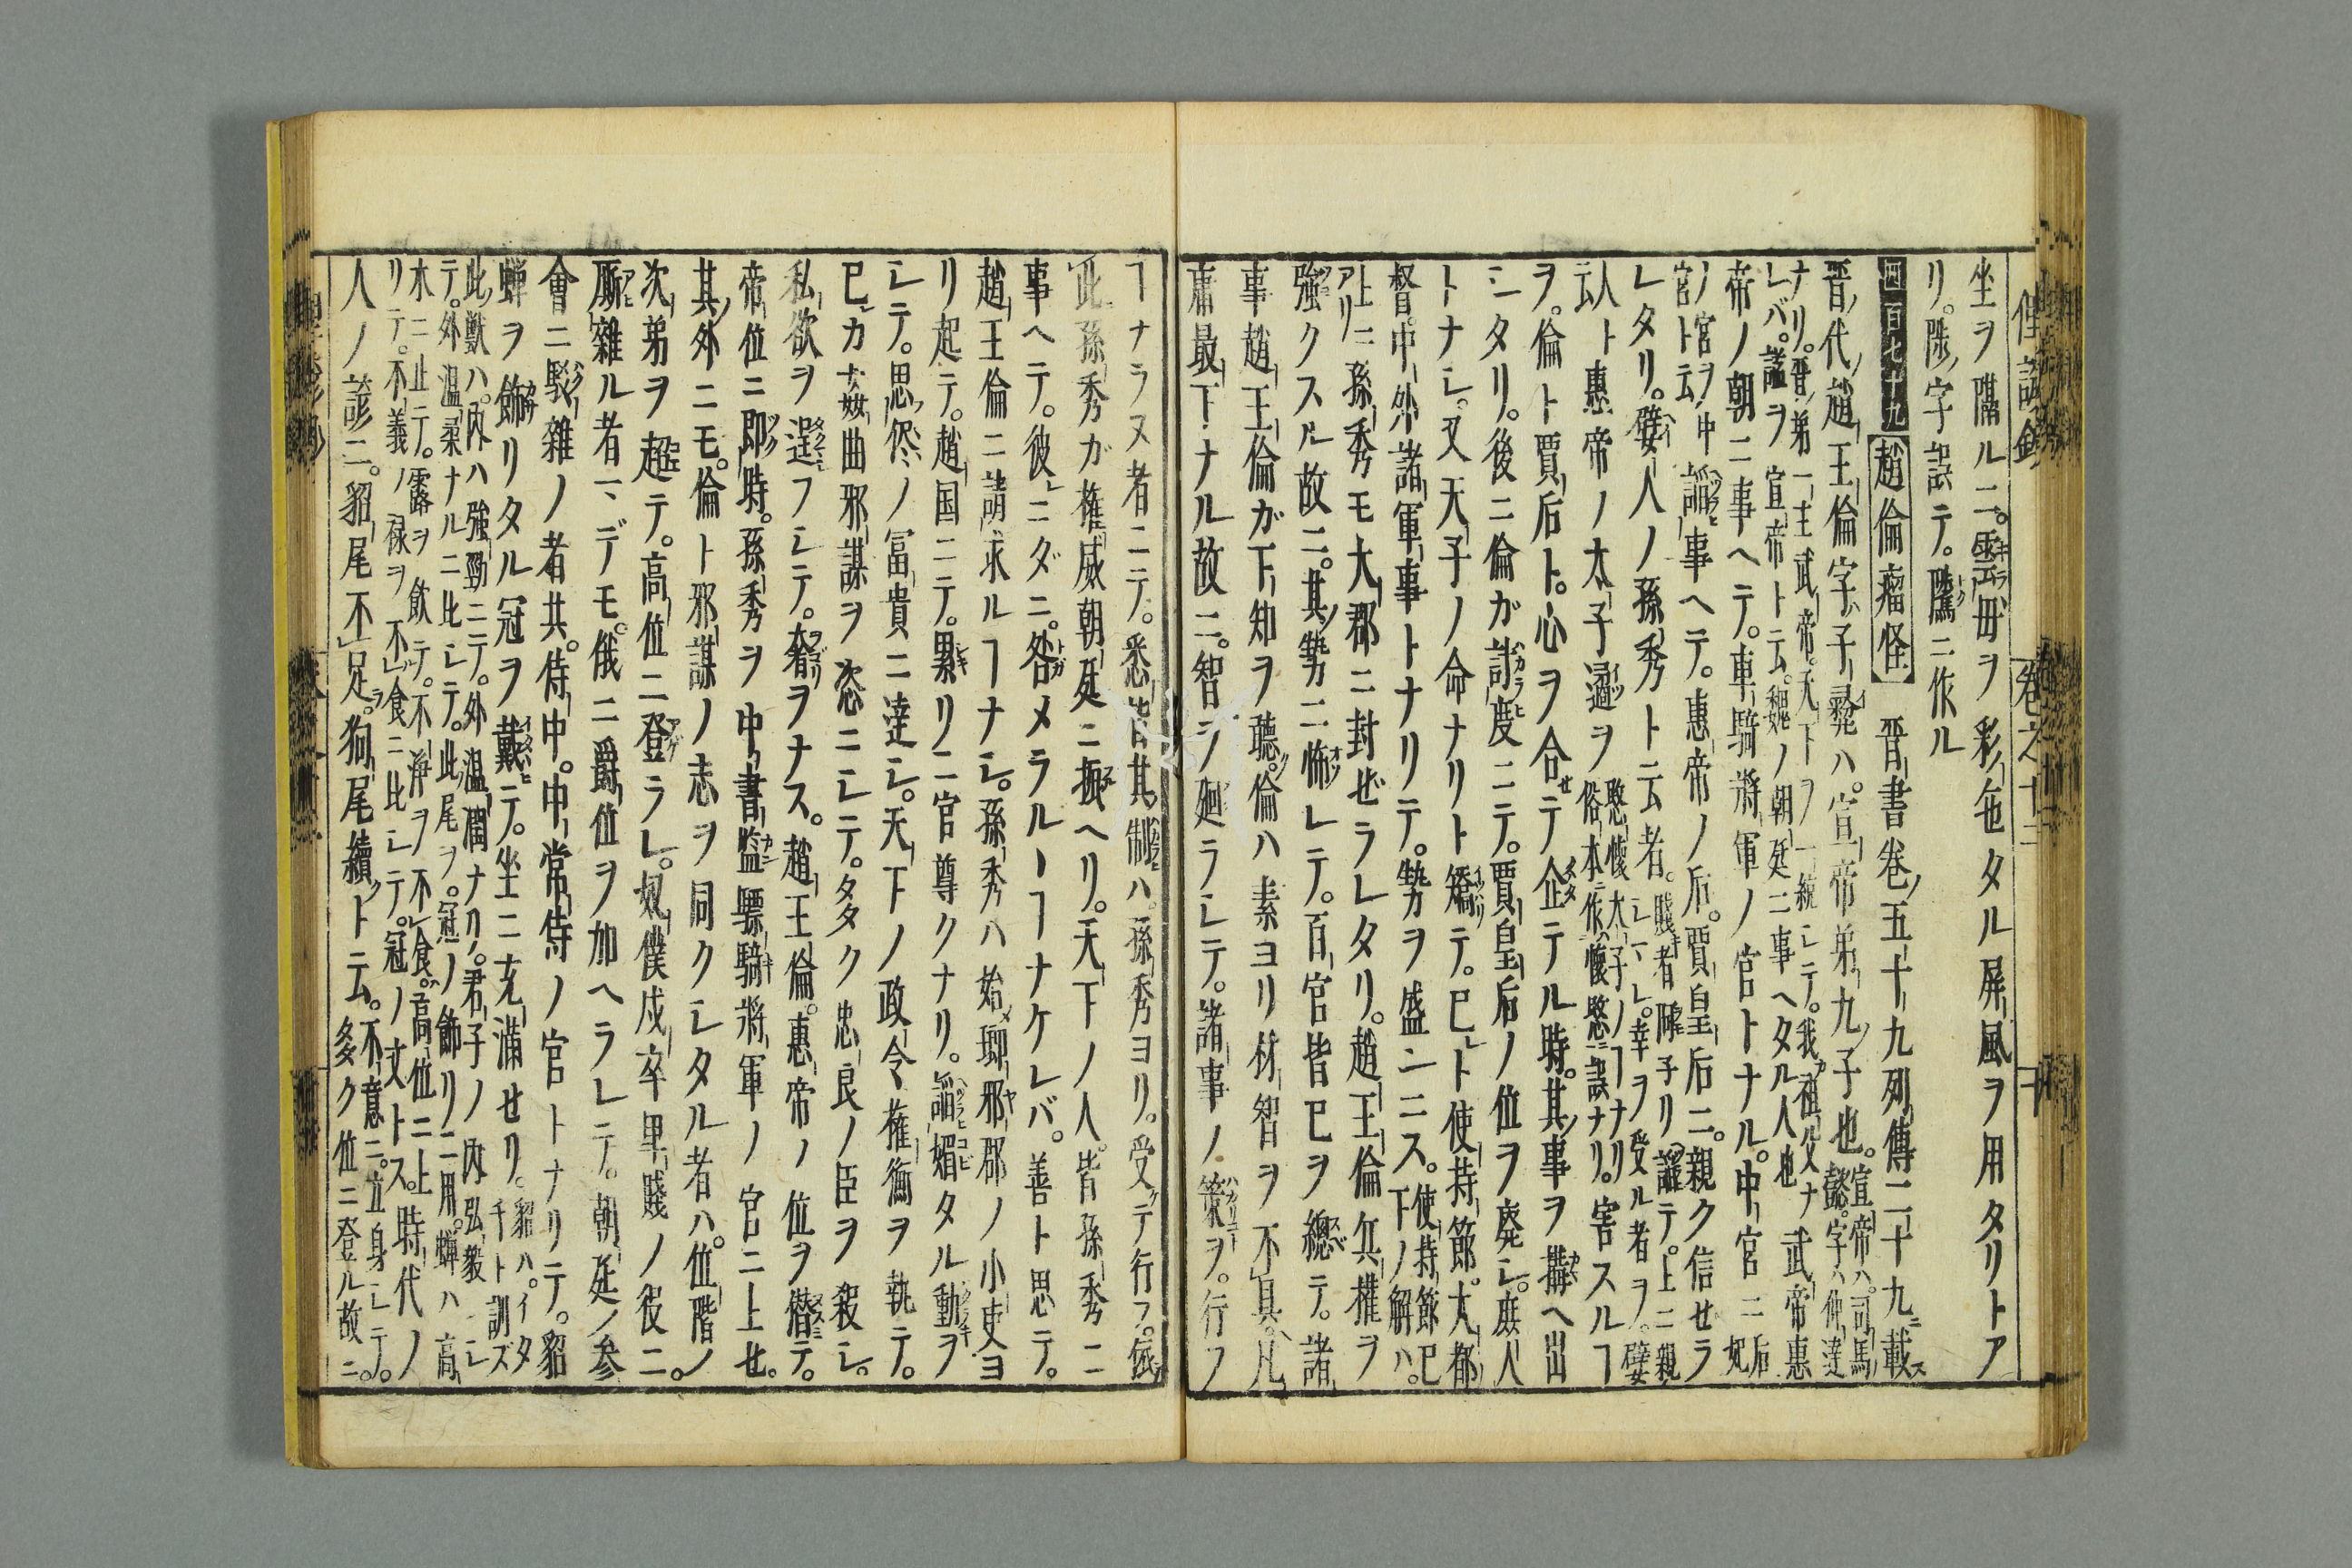 坐ヲ隔ルニ。雲母ヲ彩色タル屏風ヲ用タリトア
リ。隲ノ字誤テ。隲ニ作ル
四百七十九 趙倫瘤怪 晋書巻ノ五十九列傳二十九ニ載ス
晋ノ代ノ趙王倫字ハ子彛ハ。宣帝ノ弟九ノ子也。宣帝ハ。司馬
懿。字ハ仲達
ナリ。晋ノ弟一主武帝。天下ヲ一統シテ。我祖父ナ
レバ。謚ヲ宣帝ト云。魏ノ朝廷ニ事ヘタル人也
武帝惠
帝ノ朝ニ事ヘテ。車騎將軍ノ官トナル。中宮ニ
后妃
ノ宮ヲ中
宮ト云
謟事ヘテ。惠帝ノ后。賈皇后ニ。親ク信セラ
レタリ。嬖人ノ孫秀ト云者。
賤者
謟テ。上ニ親
シ。幸ヲ受ル者ヲ。嬖
人ト
云
惠帝ノ太子遹ヲ
愍懷太子ノヿナリ
俗本ニ作懷愍誤ナリ。
害スルヿ
ヲ。倫ト賈后ト。心ヲ合セテ企テル時。其事ヲ搆ヘ出
シタリ。後ニ倫ガ計度ニテ。賈皇后ノ位ヲ廢シ。庶人
トナシ。又天子ノ命ナリト矯テ。已ト使持節。大都
督。中外諸軍事トナリテ。勢ヲ盛ンニス。
使持節已
下ノ解ハ。
上ニ
アリ
孫秀モ大郡ニ封ゼラレタリ。趙王倫兵權ヲ
強クスル故ニ。其勢ニ怖レテ。百官皆已ヲ總テ。諸
事趙王倫ガ下知ヲ聽。倫ハ素ヨリ材智ヲ不具。凡
庸最下ナル故ニ。智ヲ廻ラシテ。諸事ノ策ヲ。行フ
ヿナラヌ者ニテ。悉皆其制ハ。孫秀ヨリ。受テ行フ。依
此孫秀ガ權威朝廷ニ振ヘリ。天下ノ人。皆孫秀ニ
事ヘテ。彼ニダニ。咎メラルヽヿナケレバ。善ト思テ。
趙王倫ニ請求ルヿナシ。孫秀ハ始メ瑯邪郡ノ小吏ヨ
リ起テ。趙国ニテ。累リニ官尊クナリ。謟媚タル動ヲ
シテ。思侭ノ冨貴ニ達シ。天下ノ政令權衡ヲ執テ。
已カ姦曲邪謀ヲ恣ニシテ。多ク忠良ノ臣ヲ殺シ。
私欲ヲ逞フシテ。奢ヲナス。趙王倫。惠帝ノ位ヲ僣テ。
帝位ニ即時。孫秀ヲ中書監驃騎將軍ノ官ニ上セ。
其外ニモ。倫ト邪謀ノ志ヲ同クシタル者ハ。位階ノ
次弟ヲ超テ。高位ニ登ラレ。奴僕戍卒卑賤ノ役ニ。
厮雜ル者マデモ。俄ニ爵位ヲ加ヘラレテ。朝廷ノ参
會ニ駁雜ノ者共。侍中。中常侍ノ官トナリテ。貂
蝉ヲ飾リタル冠ヲ戴テ。坐ニ充滿セリ。
貂ハ。イタ
チト訓ズ
此獸ハ。内ハ強勁ニテ。外温潤ナリ。君子ノ内弘毅ニシ
テ。外温柔ナルニ比シテ。此尾ヲ。冠ノ飾リニ用。蝉ハ高
木ニ止テ。露ヲ飲テ。不淨ヲ不食。高位ニ上
リテ。不義ノ禄ヲ不食ニ比シテ。冠ノ文トス。
時代ノ
人ノ諺ニ。貂尾不足。狗尾續ト云。
不意ニ。立身シテ。
多ク位ニ登ル故ニ。